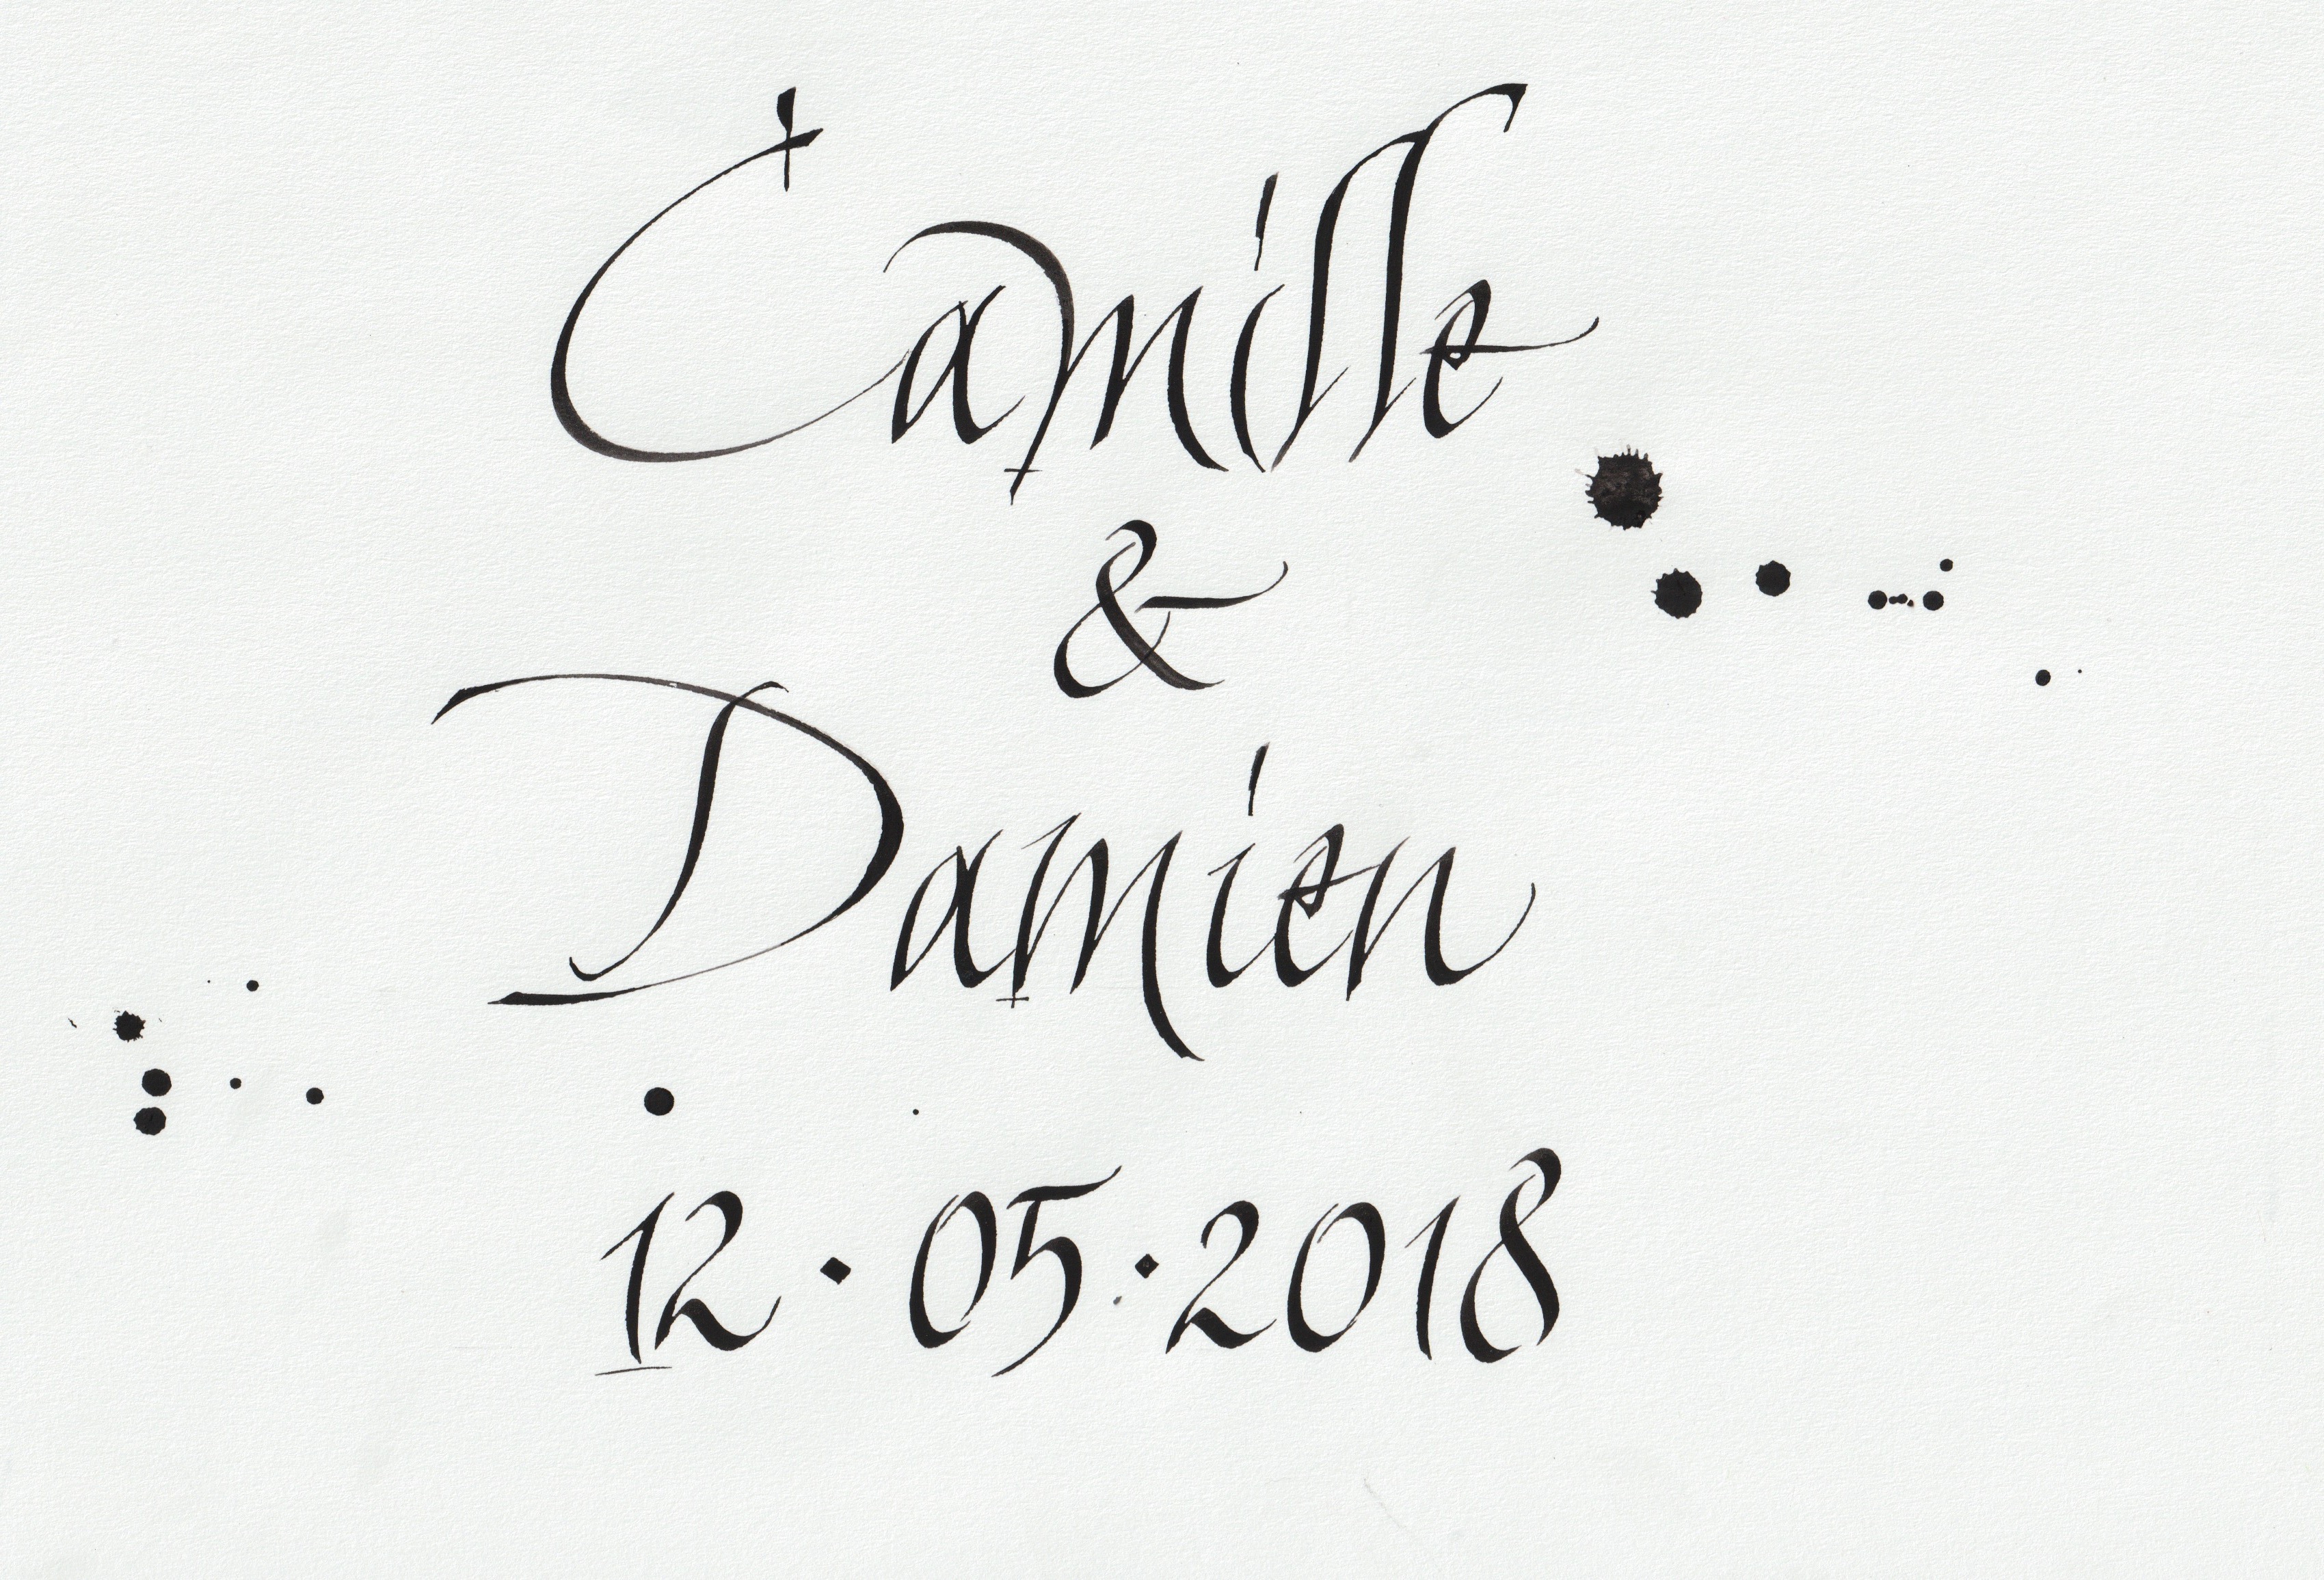 Camille
&
Damien
12·05·2018